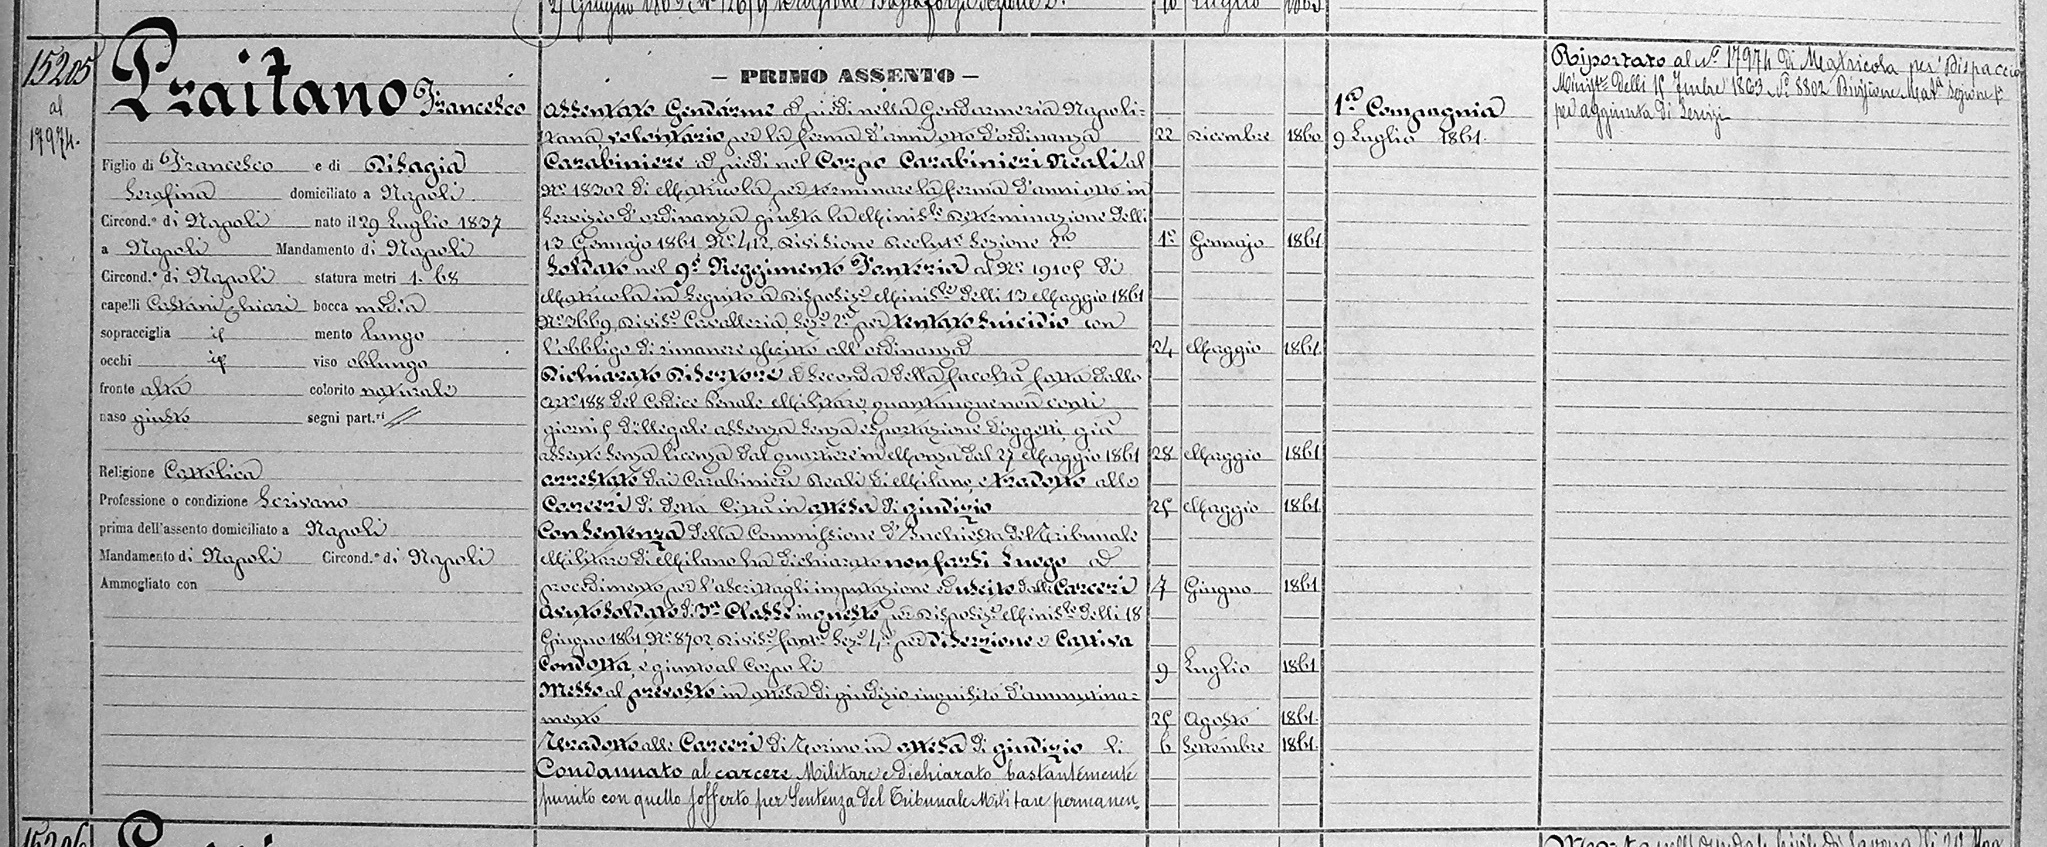 2) Giugno 1863 N° 1261 9 10 Luglio 1863
15205
al
17974.
Praitano Francesco
Figlio di Francesco e di Disagia
Serafina domiciliato a Napoli
Circond.° di Napoli nato il 29 Luglio 1837
a Napoli Mandamento di Napoli
Circond.° di Napoli statura metri 1. 68
capelli Castani chiari bocca media
sopracciglia id mento lungo
occhi id viso oblungo
fronte alta colorito naturale
naso giusto segni part.ri //
Religione Cattolica
Professione o condizione Scrivano
prima dell'assento domiciliato a Napoli
Mandamento di Napoli Circond.° di Napoli
Ammogliato con
— PRIMO ASSENTO —
Assentato Gendarme a piedi nella Gendarmeria Napoli-
tana, volontario per la ferma d'anni otto d'ordinanza 22 Dicembre 1860
Carabiniere a piedi nel Corpo Carabinieri Reali al
N° 18302 di Matricola per terminare la ferma d'anni otto in
servizio d'ordinanza giusta la Minis.le Determinazione delli
13 Gennajo 1861 N° 412, Divisione Reclut.e Sezione 1° Gennajo 1861
Soldato nel 9° Reggimento Fanteria al N° 19105 di
Matricola in seguito a Disposiz.e Minis.le delli 13 Maggio 1861
N° 3669 Divis.e Cavalleria, Sez.e 2a per tentato suicidio con
l'obbligo di rimanere ascritto all'ordinanza 24 Maggio 1861
Dichiarato Disertore a seconda della facoltà fatta dallo
Art. 188 del Codice Penale Militare, quantunque non conti
giorni 5 d'illegale assenza senza esportazione d'oggetti, già
assente senza licenza dal quartiere in Monza dal 27 Maggio 1861 28 Maggio 1861
Arrestato dai Carabinieri Reali di Milano, e tradotto alle
Carceri di detta Città in attesa di giudizio 25 Maggio 1861
Con Sentenza della Commissione d'Inchiesta del Tribunale
Militare di Milano ha dichiarato non farsi luogo a
procedimento per l'ascrittagli imputazione ed uscito dalle Carceri 7 Giugno 1861
Avuto Soldato di 3a Classe in questo per Disposiz.e Minis.le delli 18
Giugno 1861, N° 8702 Divis.e Fant.a Sez.e 4a per diserzione e cattiva
condotta, e giunto al Corpo li 9 Luglio 1861
Messo al prevosto in attesa di giudizio inquisito d'ammutina-
mento 25 Agosto 1861.
Tradotto alle Carceri di Torino in attesa di giudizio li 6 Settembre 1861.
Condannato al carcere Militare e dichiarato bastantemente
punito con quello sofferto per Sentenza del Tribunale Militare permanen.
1a Compagnia
9 Luglio 1861.
Riportato al N° 17974 di Matricola per Dispaccio
Minist.e delli 15 7mbre 1863 N° 8802 Divisione Mat.a Sezione 1a
per aggiunta di servizi
15206